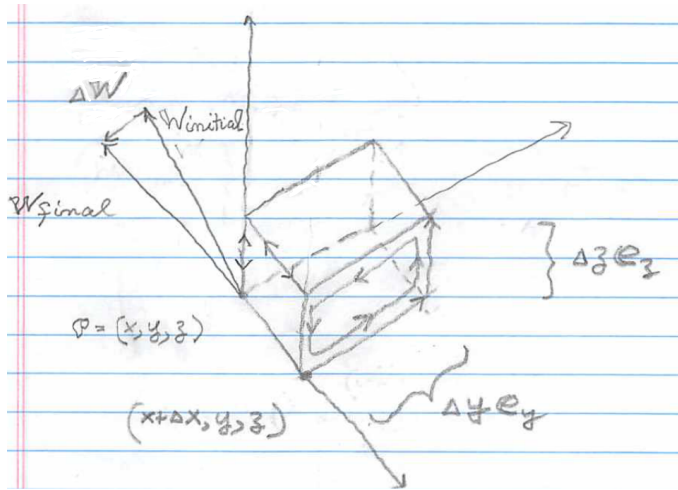 ΔW
Winitial
Wfinal
Δz e_z
P = (x, y, z)
(x+Δx, y, z)
Δy e_y